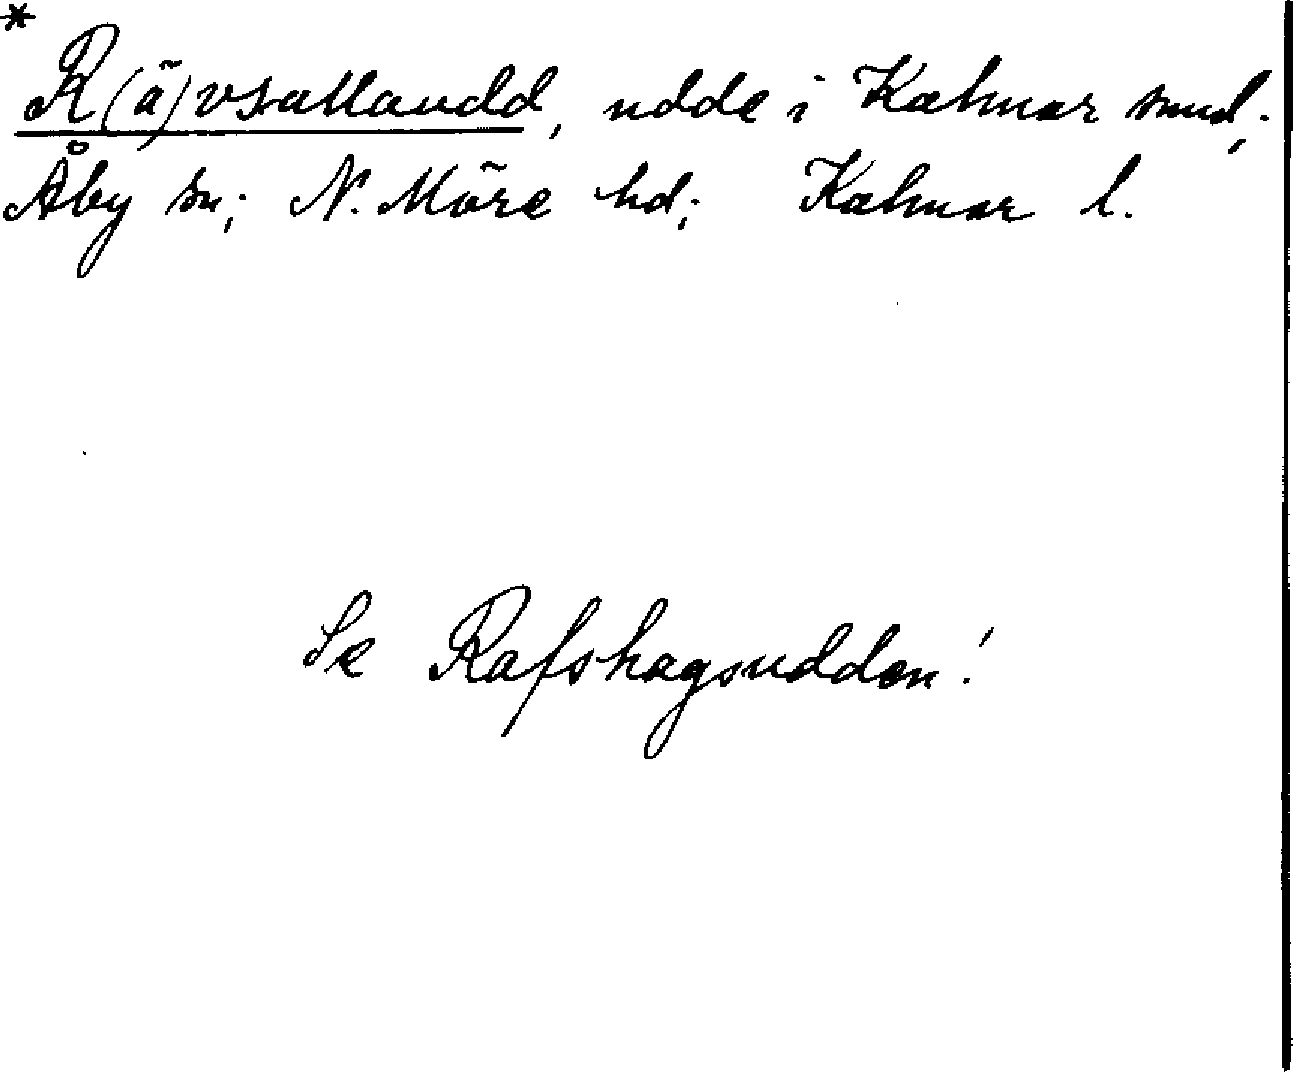 *
R(ä)vsallaudd, udde i Kalmar sund;
Åby sn; N. Möre hd; Kalmar l.
Se Rafshagsudden!